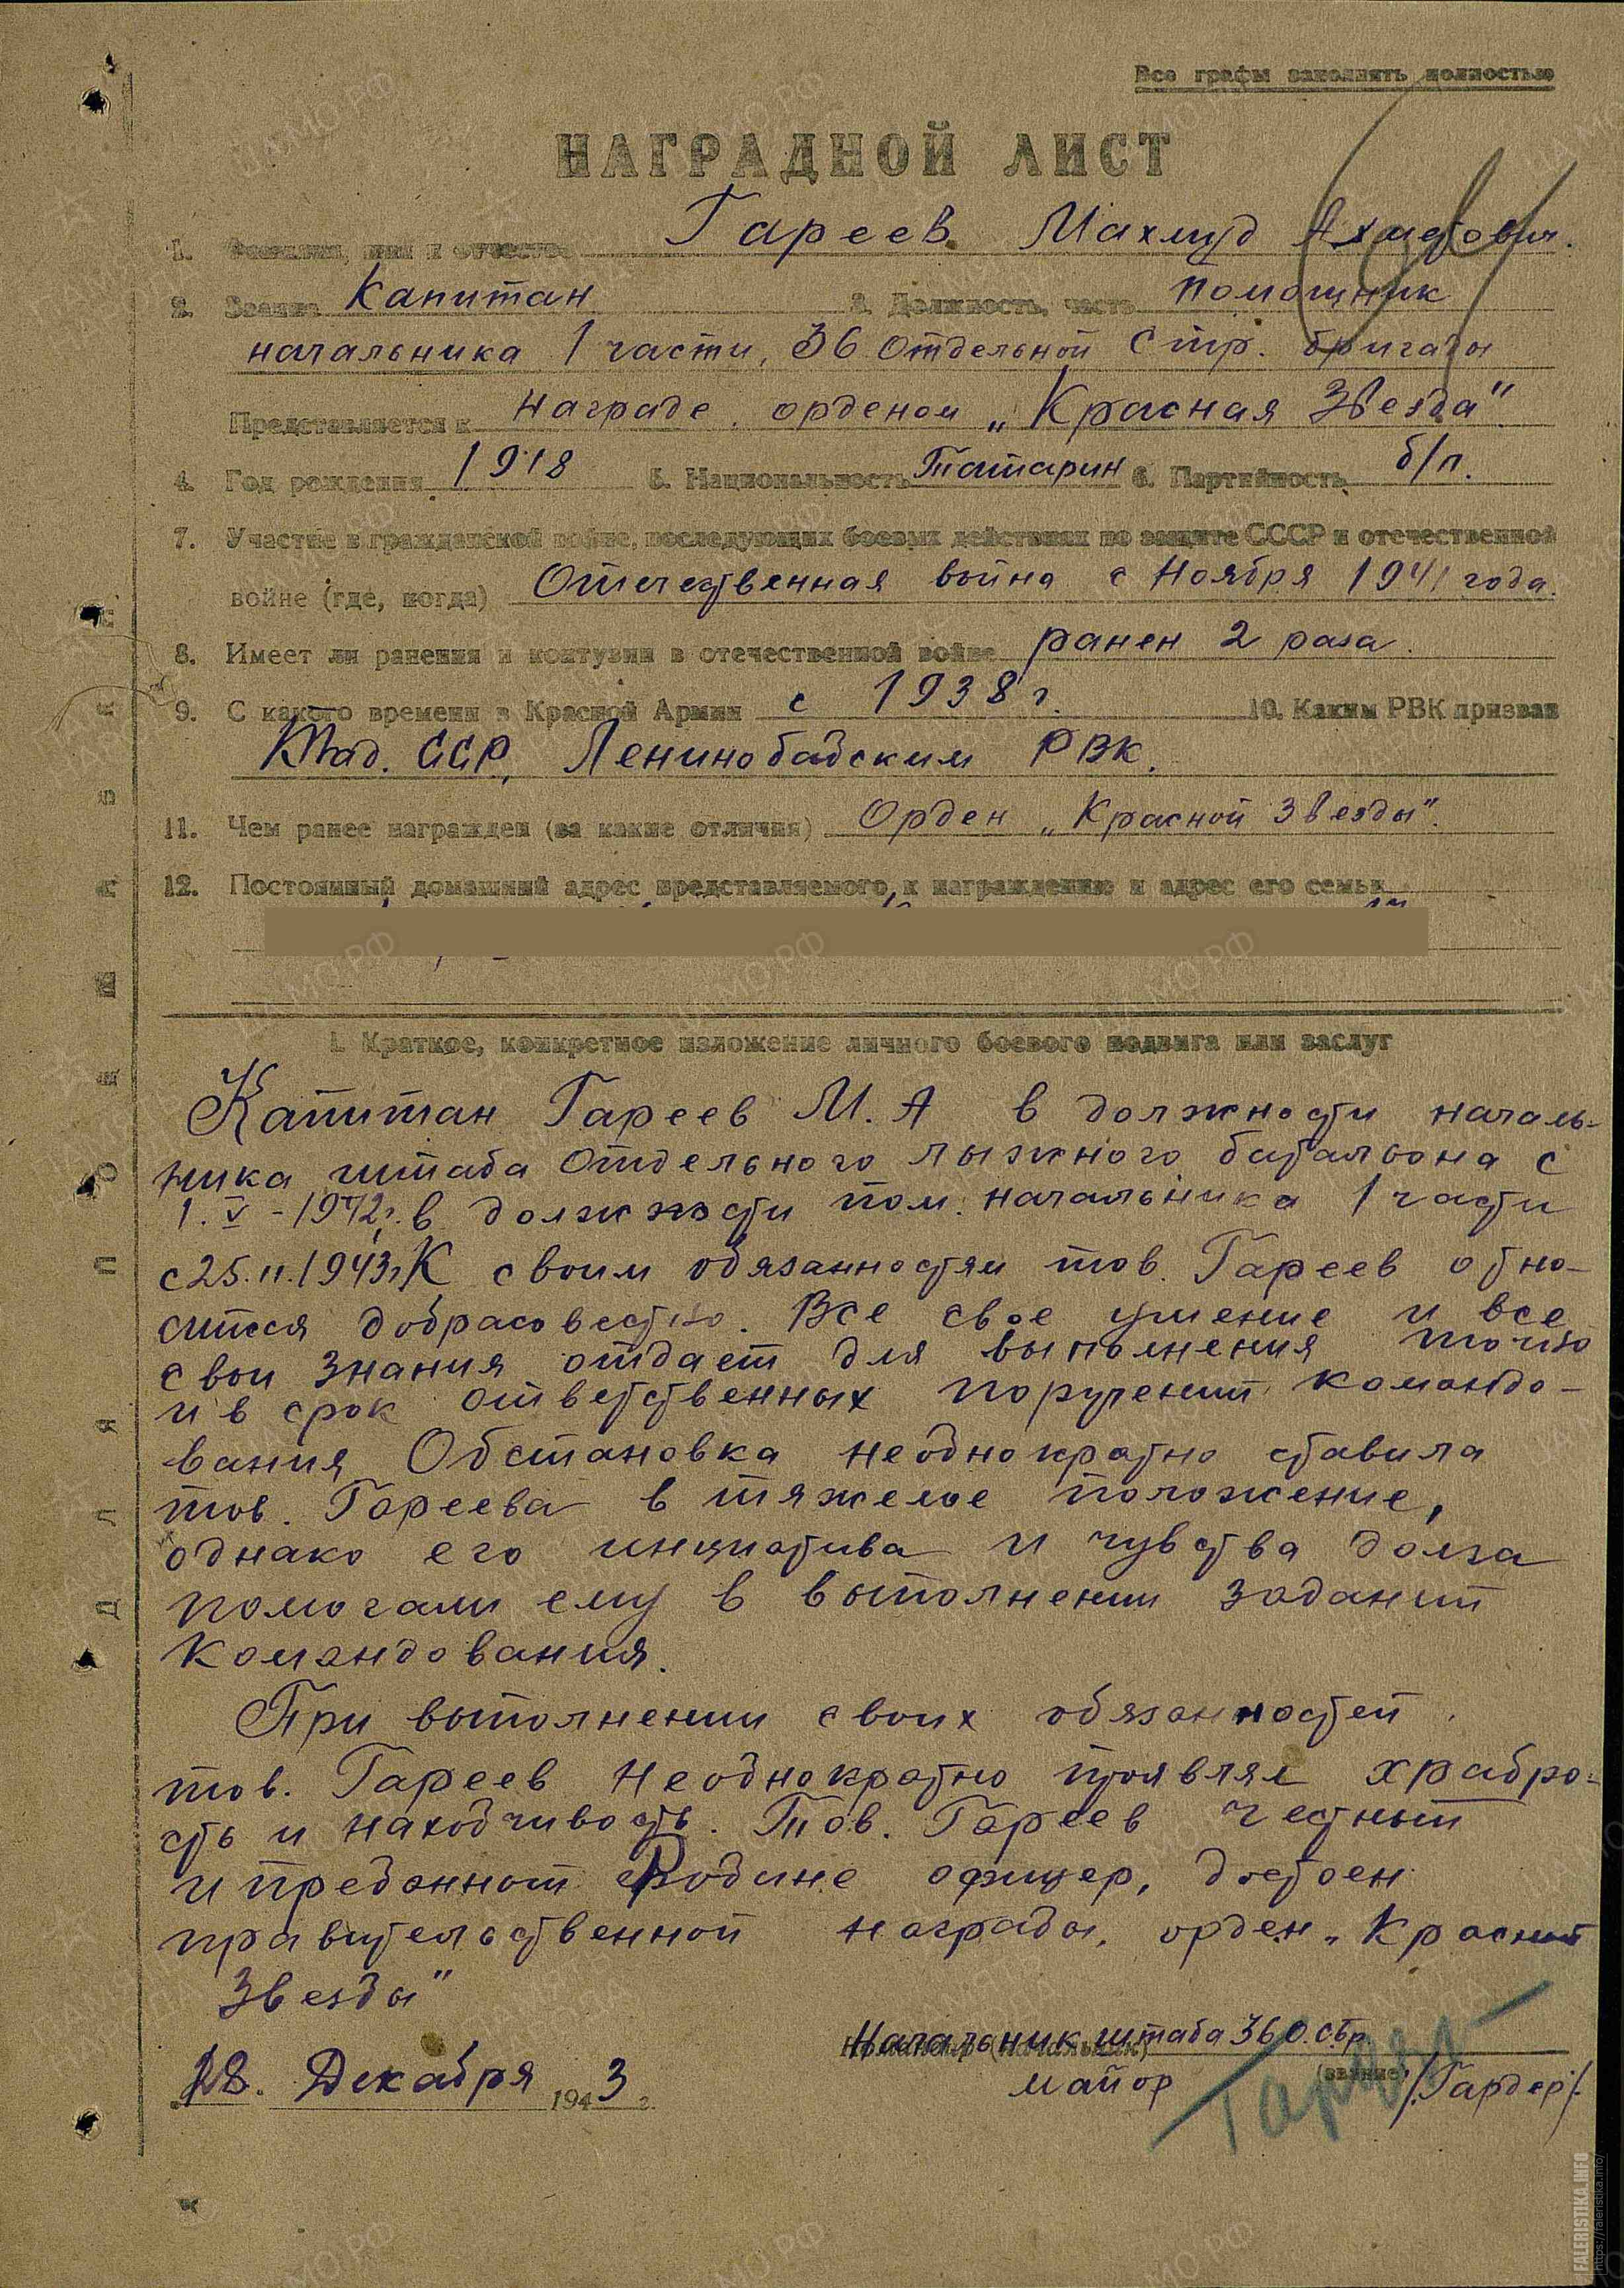 Все графы заполнять полностью
НАГРАДНОЙ ЛИСТ
1. Фамилия, имя и отчество Гареев Махмуд Ахметович.
2. Звание Капитан 3. Должность, часть Помощник
начальника 1 части, 36 Отдельной Стр. бригады
Представляется к награде орденом „Красная Звезда"
4. Год рождения 1918 5. Национальность Татарин 6. Партийность б/п.
7. Участие в гражданской войне, последующих боевых действиях по защите СССР и отечественной
войне (где, когда) Отечественная война с Ноября 1941 года.
8. Имеет ли ранения и контузии в отечественной войне ранен 2 раза.
9. С какого времени в Красной Армии с 1938 г. 10. Каким РВК призван
Тад. ССР, Ленинобадским РВК.
11. Чем ранее награжден (за какие отличия) Орден „Красной Звезды".
12. Постоянный домашний адрес представляемого к награждению и адрес его семьи
I. Краткое, конкретное изложение личного боевого подвига или заслуг
Капитан Гареев М. А в должности началь-
ника штаба Отдельного лыжного батальона с
1. V - 1942г. в должности пом. начальника 1 части
с 25. 11. 1943г. К своим обязанностям тов. Гареев отно-
сится добрасовестно. Все свое умение и все
свои знания отдает для выполнения точно
и в срок ответственных поручений командо-
вания Обстановка неоднократно ставила
тов. Гареева в тяжелое положение,
однако его инциатива и чувства долга
помогали ему в выполнении заданий
командования.
При выполнении своих обязанностей
тов. Гареев неоднократно проявлял храбро-
сть и находчивость. Тов. Гареев честный
и преданный Родине офицер, достоен
правительственной награды, орден „Красной
Звезды"
Начальник штаба 36 О.сбр.
Командир (начальник)
18. Декабря 1943 г.
майор (звание) /Гардер/
ДЛЯ ПОДШИВКИ
FALERISTIKA.INFO
https://faleristika.info/
ЦАМО.РФ